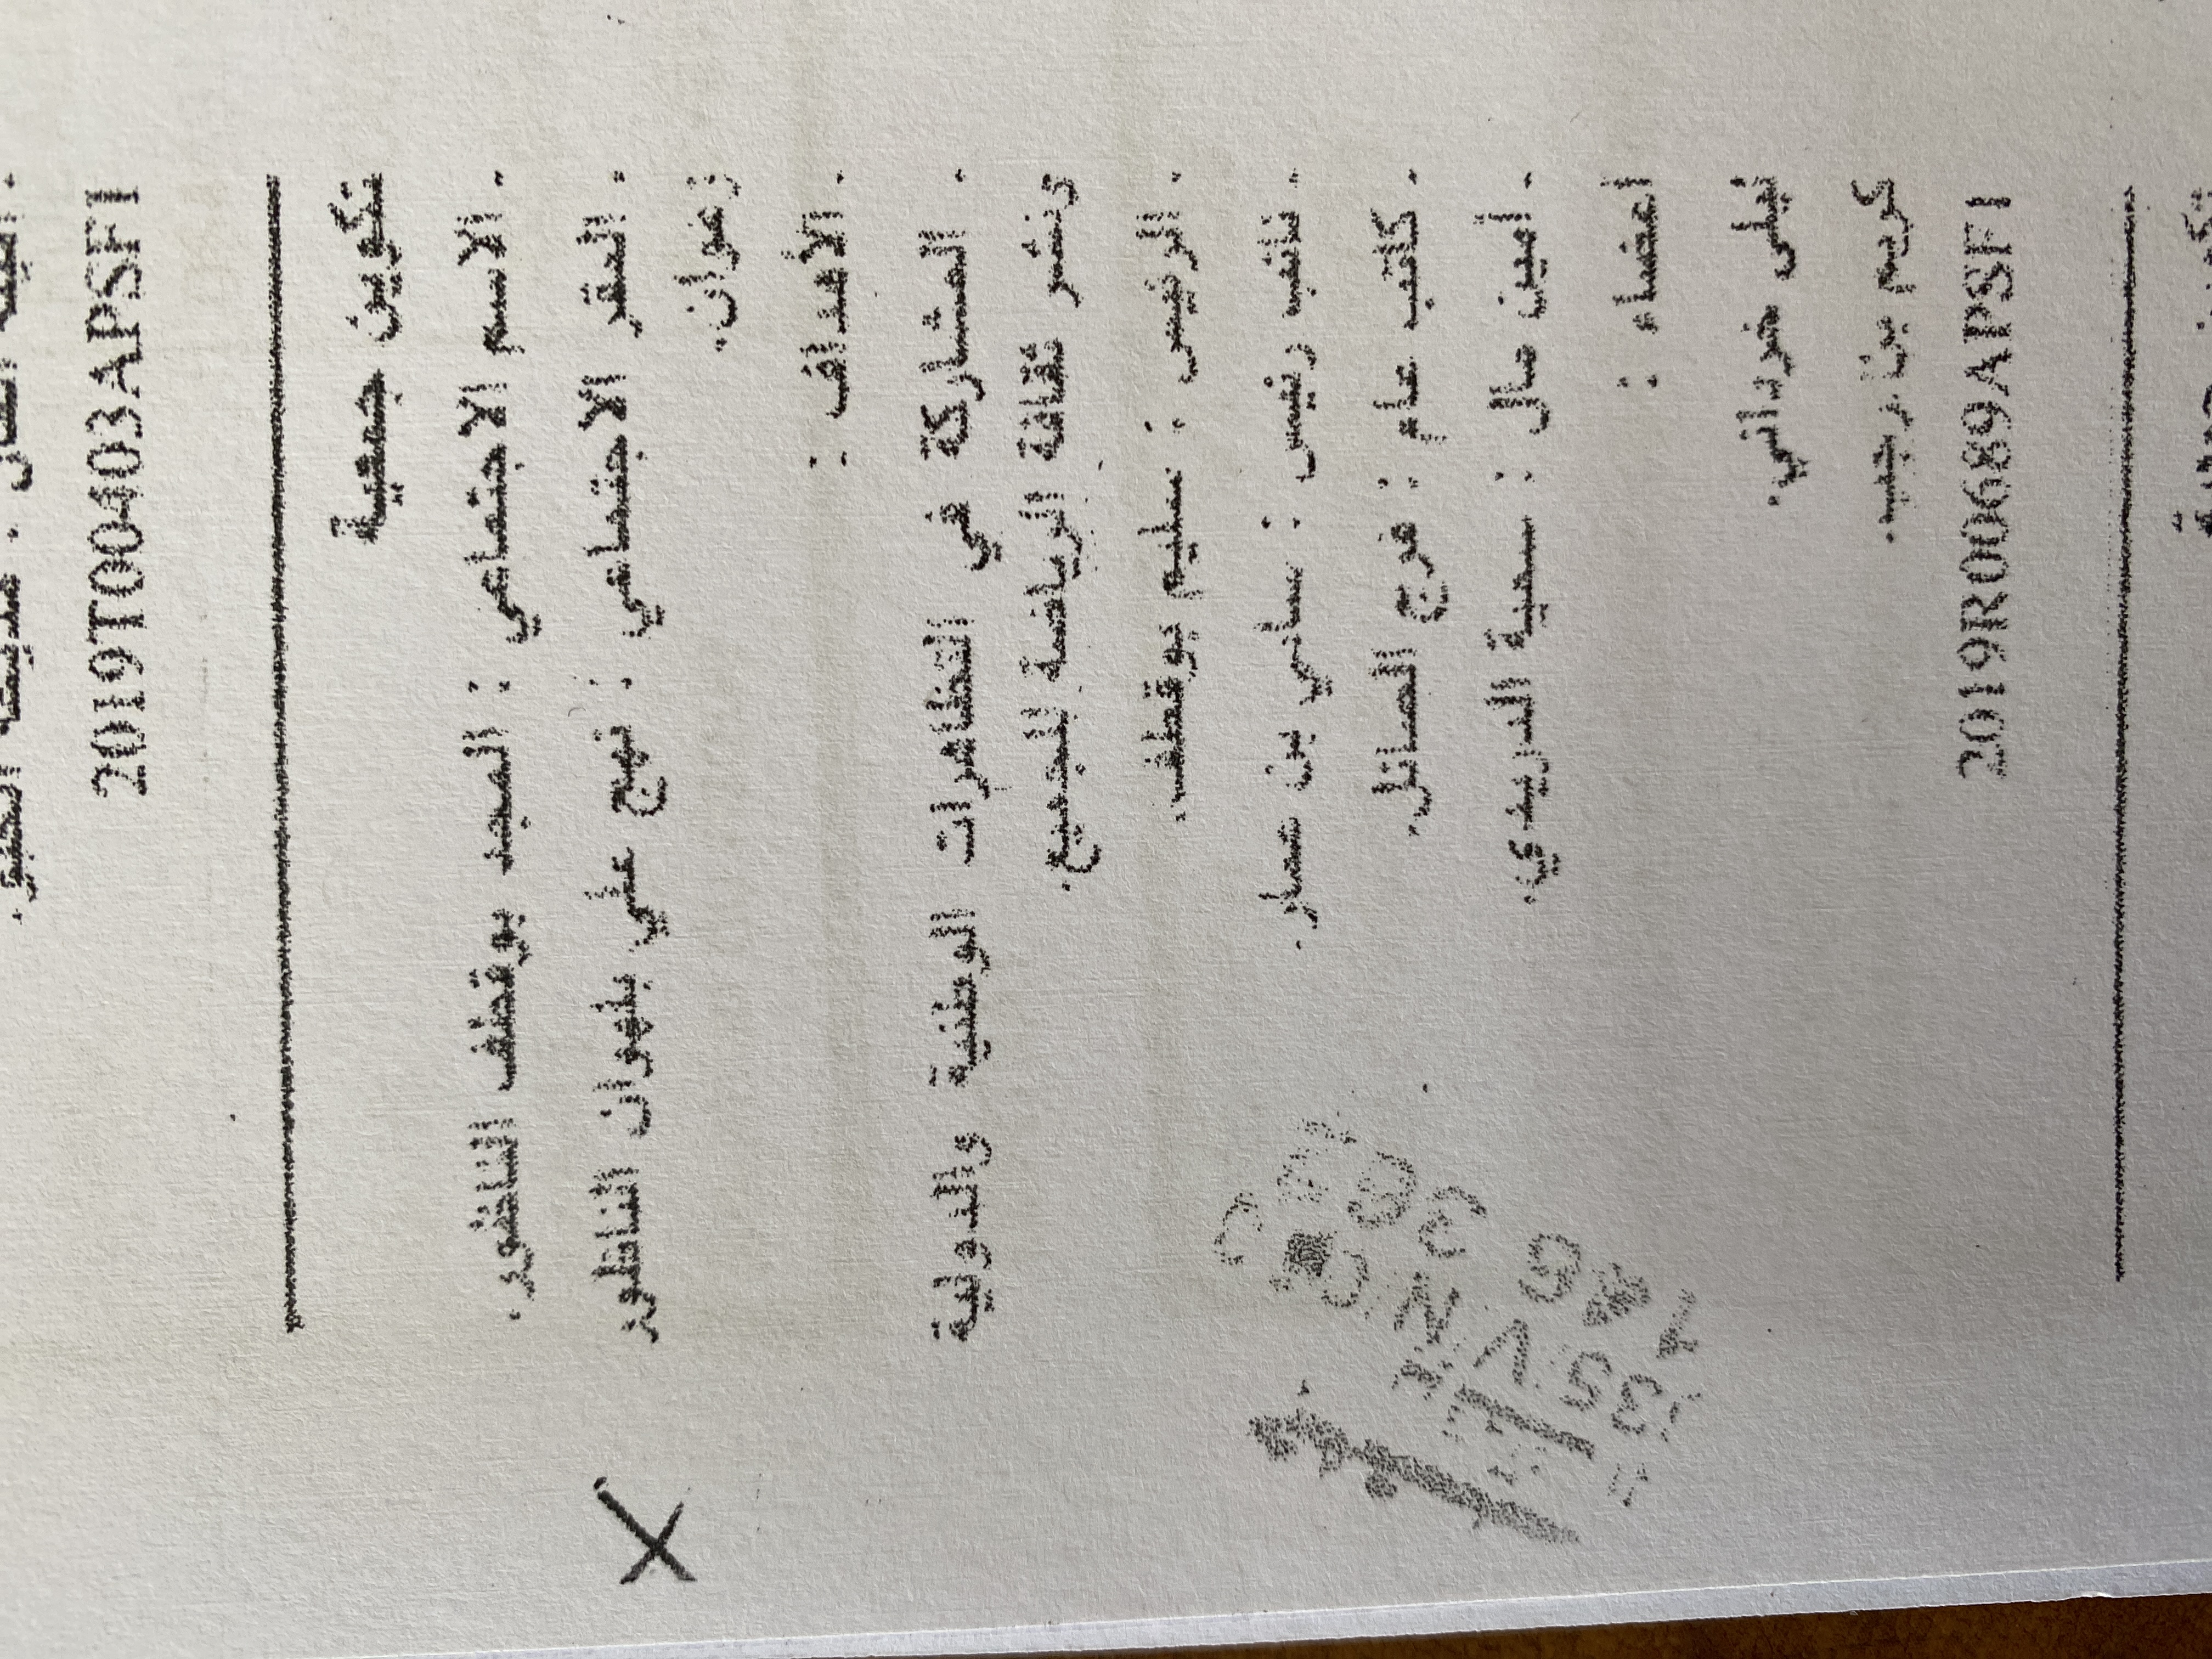 2019T00403APSF1
تكوين جمعية
. الاسم الاجتماعي : المجد بوقطف الناظور.
. المقر الاجتماعي : نهج علي بلهوان الناظور
زغوان.
. الأهداف :
. المشاركة في التظاهرات الوطنية والدولية
ونشر ثقافة الرياضة للجميع.
. الرئيس : سليم بوقطف.
. نائب رئيس : سامي بن عمار.
. كاتب عام : فرج الصانل.
. أمين مال : سمية الدريدي.
اعضاء :
ليلى خرداني.
كريم بن رجب.
2019R00689APSF1